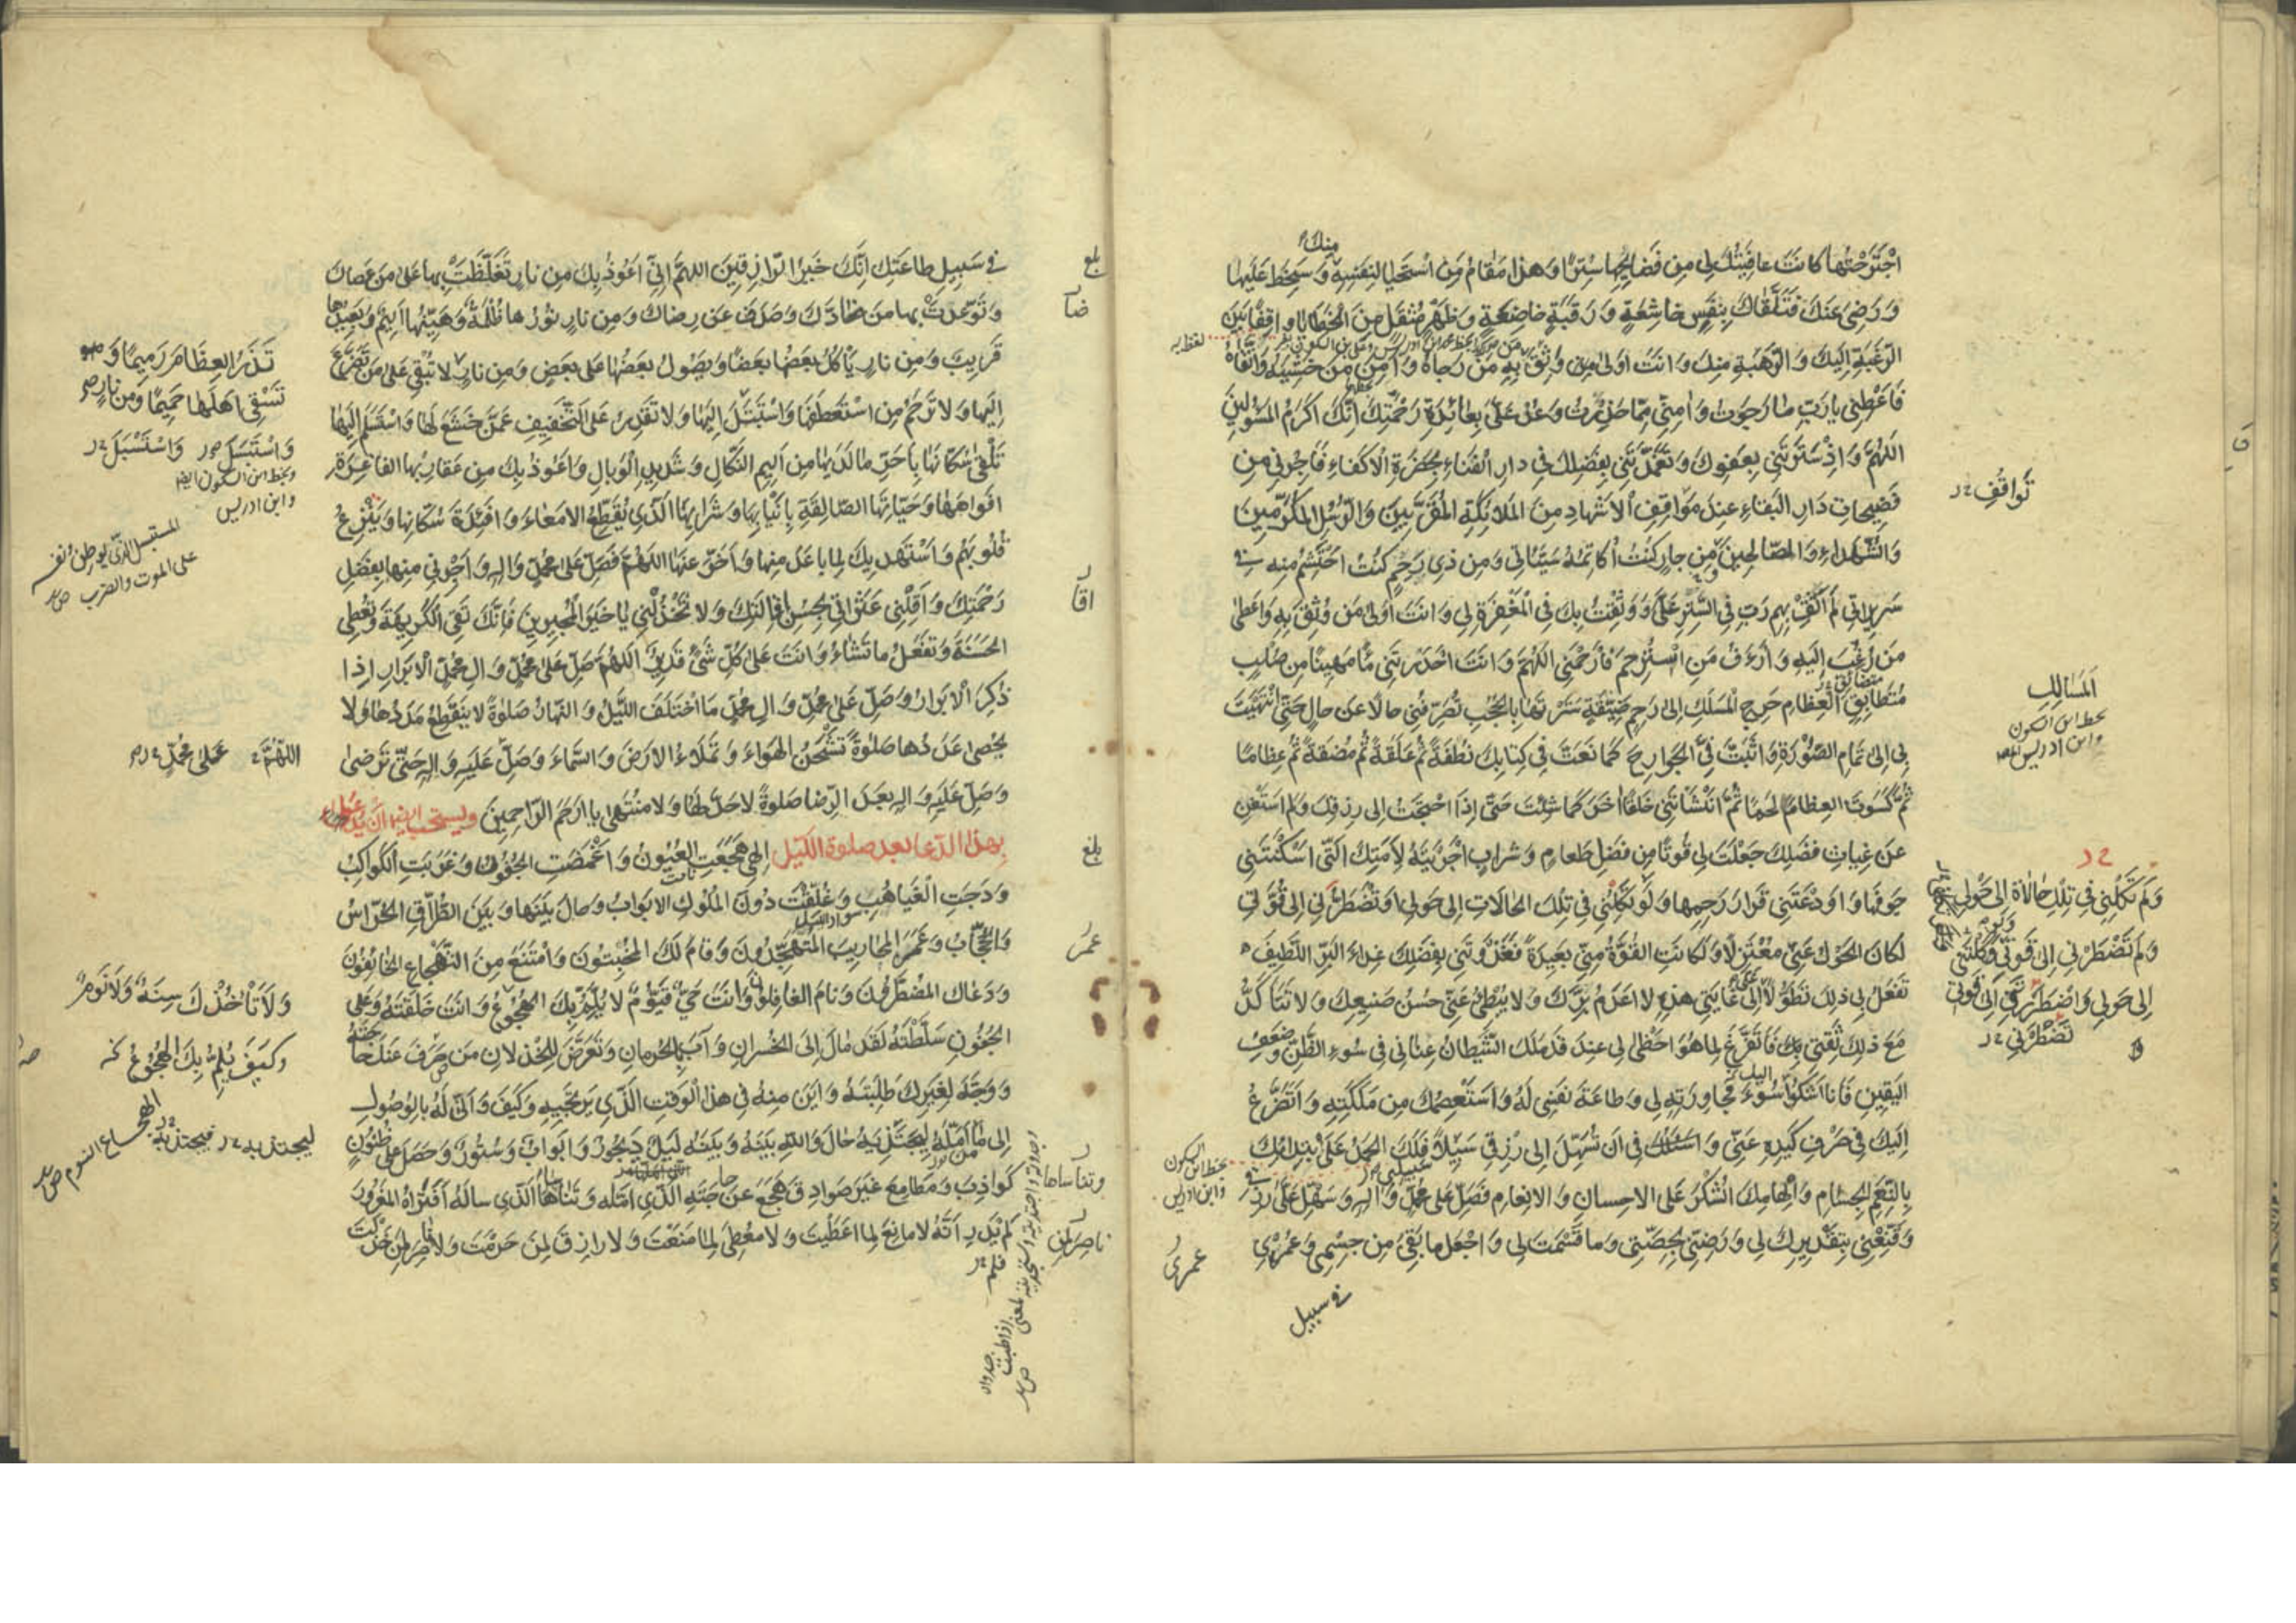 اجْتَرَحْتُهَا كَانَتْ عَافِيَتُكَ لِي مِنْ فَضَايِحِهَا سِتْرًا وَهَذَا مَقَامُ مَنِ اسْتَحْيَا لِنَفْسِهِ مِنْكَ وَسَخِطَ عَلَيْهَا
وَرَضِيَ عَنْكَ فَتَلَقَّاكَ بِنَفْسٍ خَاشِعَةٍ وَرَقَبَةٍ خَاضِعَةٍ وَظَهْرٍ مُثْقَلٍ مِنَ الْخَطَايَا وَاقِفًا بَيْنَ
الرَّغْبَةِ إِلَيْكَ وَالرَّهْبَةِ مِنْكَ وَأَنْتَ أَوْلَى مَنْ وَثِقَ بِهِ مَنْ رَجَاهُ وَآمَنَ مَنْ خَشِيَهُ وَاتَّقَاهُ
فَأَعْطِنِي يَا رَبِّ مَا رَجَوْتُ وَآمِنِّي مِمَّا حَذِرْتُ وَعُدْ عَلَيَّ بِعَائِدَةِ رَحْمَتِكَ إِنَّكَ أَكْرَمُ الْمَسْؤُلِينَ
اللَّهُمَّ وَإِذْ سَتَرْتَنِي بِعَفْوِكَ وَتَغَمَّدْتَنِي بِفَضْلِكَ فِي دَارِ الْفَنَاءِ بِحَضْرَةِ الْأَكْفَاءِ فَأَجِرْنِي مِنْ
فَضِيحَاتِ دَارِ الْبَقَاءِ عِنْدَ مَوَاقِفِ الْأَشْهَادِ مِنَ الْمَلَائِكَةِ الْمُقَرَّبِينَ وَالرُّسُلِ الْمُكَرَّمِينَ
وَالشُّهَدَاءِ وَالصَّالِحِينَ مِنْ جَارٍ كُنْتُ أُكَاتِمُهُ سَيِّئَاتِي وَمِنْ ذِي رَحِمٍ كُنْتُ أَحْتَشِمُ مِنْهُ فِي
سَرِيرَاتِي لَمْ أَثِقْ بِهِمْ رَبِّ فِي السَّتْرِ عَلَيَّ وَوَثِقْتُ بِكَ فِي الْمَغْفِرَةِ لِي وَأَنْتَ أَوْلَى مَنْ وُثِقَ بِهِ وَأَعْطَى
مَنْ رُغِبَ إِلَيْهِ وَأَرْءَفُ مَنِ اسْتُرْحِمَ فَارْحَمْنِي اللَّهُمَّ وَأَنْتَ أَحْدَرْتَنِي مَاءً مَهِينًا مِنْ صُلْبٍ
مُتَطَابِقِ الْعِظَامِ حَرِجِ الْمَسْلَكِ إِلَى رَحِمٍ ضَيِّقَةٍ سَتَرْتَهَا بِالْحُجُبِ تُصَرِّفُنِي حَالًا عَنْ حَالٍ حَتَّى انْتَهَيْتَ
بِي إِلَى تَمَامِ الصُّورَةِ وَأَثْبَتَّ فِيَّ الْجَوَارِحَ كَمَا نَعَتَّ فِي كِتَابِكَ نُطْفَةً ثُمَّ عَلَقَةً ثُمَّ مُضْغَةً ثُمَّ عِظَامًا
ثُمَّ كَسَوْتَ الْعِظَامَ لَحْمًا ثُمَّ أَنْشَأْتَنِي خَلْقًا آخَرَ كَمَا شِئْتَ حَتَّى إِذَا احْتَجْتُ إِلَى رِزْقِكَ وَلَمْ أَسْتَغْنِ
عَنْ غِيَاثِ فَضْلِكَ جَعَلْتَ لِي قُوتًا مِنْ فَضْلِ طَعَامٍ وَشَرَابٍ أَجْرَيْتَهُ لِأَمَتِكَ الَّتِي أَسْكَنْتَنِي
جَوْفَهَا وَأَوْدَعْتَنِي قَرَارَ رَحِمِهَا وَلَوْ تَكِلْنِي فِي تِلْكَ الْحَالَاتِ إِلَى حَوْلِي أَوْ تَضْطَرُّنِي إِلَى قُوَّتِي
لَكَانَ الْحَوْلُ عَنِّي مُعْتَزِلًا وَلَكَانَتِ الْقُوَّةُ مِنِّي بَعِيدَةً فَغَذَوْتَنِي بِفَضْلِكَ غِذَاءَ الْبَرِّ اللَّطِيفِ
تَفْعَلُ بِي ذَلِكَ تَطَوُّلًا عَلَيَّ إِلَى غَايَتِي هَذِهِ لَا أَعْدَمُ بِرَّكَ وَلَا يُبْطِئُ عَنِّي حُسْنُ صَنِيعِكَ وَلَا تَتَأَكَّدُ
مَعَ ذَلِكَ ثِقَتِي بِكَ فَأَتَفَرَّغَ لِمَا هُوَ أَحْظَى لِي عِنْدَكَ قَدْ مَلَكَ الشَّيْطَانُ عِنَانِي فِي سُوءِ الظَّنِّ وَضَعْفِ
الْيَقِينِ فَأَنَا أَشْكُو إِلَيْكَ سُوءَ مُجَاوَرَتِهِ لِي وَطَاعَةَ نَفْسِي لَهُ وَأَسْتَعْصِمُكَ مِنْ مَلَكَتِهِ وَأَتَضَرَّعُ
إِلَيْكَ فِي صَرْفِ كَيْدِهِ عَنِّي وَأَسْئَلُكَ فِي أَنْ تُسَهِّلَ إِلَى رِزْقِي سَبِيلًا فَلَكَ الْحَمْدُ عَلَى ابْتِدَائِكَ
بِالنِّعَمِ الْجِسَامِ وَإِلْهَامِكَ الشُّكْرَ عَلَى الْإِحْسَانِ وَالْإِنْعَامِ فَصَلِّ عَلَى مُحَمَّدٍ وَآلِهِ وَسَهِّلْ عَلَيَّ رِزْقِي
وَقَنِّعْنِي بِتَقْدِيرِكَ لِي وَرَضِّنِي بِحِصَّتِي وَمَا قَسَمْتَ لِي وَاجْعَلْ مَا بَقِيَ مِنْ جِسْمِي وَعُمْرِي
في سبيل
تُوَاقِفُ
الْمَسَالِكِ
بخط ابن السكون
وابن ادريس
وَلَمْ تَكِلْنِي فِي تِلْكَ حَالَاة إِلَى حَوْلِي
وَلَمْ تَضْطَرَّنِي إِلَى قُوَّتِي
تَضْطَرَّنِي
بخط ابن السكون
وابن ادريس
عمري
فِي سَبِيلِ طَاعَتِكَ إِنَّكَ خَيْرُ الرَّازِقِينَ اللَّهُمَّ إِنِّي أَعُوذُ بِكَ مِنْ نَارٍ تَغَلَّظْتَ بِهَا عَلَى مَنْ عَصَاكَ
وَتَوَعَّدْتَ بِهَا مَنْ ضَادَّكَ وَصَدَفَ عَنْ رِضَاكَ وَمِنْ نَارٍ نُورُهَا ظُلْمَةٌ وَهَيِّنُهَا أَلِيمٌ وَبَعِيدُهَا
قَرِيبٌ وَمِنْ نَارٍ يَأْكُلُ بَعْضُهَا بَعْضًا وَيَصُولُ بَعْضُهَا عَلَى بَعْضٍ وَمِنْ نَارٍ لَا تُبْقِي عَلَى مَنْ تَضَرَّعَ
إِلَيْهَا وَلَا تَرْحَمُ مَنِ اسْتَعْطَفَهَا وَاسْتَبْتَلَ إِلَيْهَا وَلَا تَقْدِرُ عَلَى التَّخْفِيفِ عَمَّنْ خَشَعَ لَهَا وَاسْتَسْلَمَ إِلَيْهَا
تَلْقَى سُكَّانَهَا بِأَحَرِّ مَا لَدَيْهَا مِنْ أَلِيمِ النَّكَالِ وَشَدِيدِ الْوَبَالِ وَأَعُوذُ بِكَ مِنْ عَقَارِبِهَا الْفَاغِرَةِ
أَفْوَاهَهَا وَحَيَّاتِهَا الصَّالِقَةِ بِأَنْيَابِهَا وَشَرَابِهَا الَّذِي يُقَطِّعُ الْأَمْعَاءَ وَأَفْئِدَةَ سُكَّانِهَا وَيَنْزِعُ
قُلُوبَهُمْ وَأَسْتَهْدِيكَ لِمَا بَاعَدَ مِنْهَا وَأَخَّرَ عَنْهَا اللَّهُمَّ فَصَلِّ عَلَى مُحَمَّدٍ وَآلِهِ وَأَجِرْنِي مِنْهَا بِفَضْلِ
رَحْمَتِكَ وَأَقِلْنِي عَثَرَاتِي بِحُسْنِ إِقَالَتِكَ وَلَا تَخْذُلْنِي يَا خَيْرَ الْمُجِيرِينَ فَإِنَّكَ تَقِي الْكَرِيهَةَ وَتُعْطِي
الْحَسَنَةَ وَتَفْعَلُ مَا تَشَاءُ وَأَنْتَ عَلَى كُلِّ شَيْءٍ قَدِيرٌ اللَّهُمَّ صَلِّ عَلَى مُحَمَّدٍ وَآلِ مُحَمَّدٍ الْأَبْرَارِ إِذَا
ذُكِرَ الْأَبْرَارُ وَصَلِّ عَلَى مُحَمَّدٍ وَآلِ مُحَمَّدٍ مَا اخْتَلَفَ اللَّيْلُ وَالنَّهَارُ صَلَوةً لَا يَنْقَطِعُ مَدَدُهَا وَلَا
يُحْصَى عَدَدُهَا صَلَوةً تَشْحَنُ الْهَوَاءَ وَتَمْلَاءُ الْأَرْضَ وَالسَّمَاءَ وَصَلِّ عَلَيْهِ وَآلِهِ حَتَّى تَرْضَى
وَصَلِّ عَلَيْهِ وَآلِهِ بَعْدَ الرِّضَا صَلَوةً لَا حَدَّ لَهَا وَلَا مُنْتَهَى يَا أَرْحَمَ الرَّاحِمِينَ ويستحب ايضا ان يدعو
بهذا الدعا بعد صلوة الليل إِلَهِي هَجَعَتِ الْعُيُونُ وَاغْمَضَتِ الْجُفُونُ وَغَرَبَتِ الْكَوَاكِبُ
وَدَجَتِ الْغَيَاهِبُ وَغُلِّقَتْ دُونَ الْمُلُوكِ الْأَبْوَابُ وَحَالَ بَيْنَهَا وَبَيْنَ الطُّرَّاقِ الْحُرَّاسُ
وَالْحُجَّابُ وَعَمَرَ الْمَحَارِيبَ الْمُتَهَجِّدُونَ وَقَامَ لَكَ الْمُخْبِتُونَ وَامْتَنَعَ مِنَ التَّهْجَاعِ الْخَائِفُونَ
وَدَعَاكَ الْمُضْطَرُّونَ وَنَامَ الْغَافِلُونَ وَأَنْتَ حَيٌّ قَيُّومٌ لَا يُلِمُّ بِكَ الْهُجُوعُ وَأَنْتَ خَلَقْتَهُ وَعَلَى
الْجُفُونِ سَلَّطْتَهُ لَقَدْ مَالَ إِلَى الْخُسْرَانِ وَآبَ بِالْحِرْمَانِ وَتَعَرَّضَ لِلْخِذْلَانِ مَنْ صَرَفَ عَنْكَ حَاجَتَهُ
وَوَجَّهَ لِغَيْرِكَ طَلِبَتَهُ وَأَيْنَ مِنْهُ فِي هَذَا الْوَقْتِ الَّذِي يَرْتَجِيهِ وَكَيْفَ وَأَنَّى لَهُ بِالْوُصُولِ
إِلَى مَا أَمَّلَهُ لِيَجْتَذِيَهُ حَالَ وَاللَّهِ بَيْنَهُ وَبَيْنَهُ لَيْلٌ دَيْجُورٌ وَأَبْوَابٌ وَسُتُورٌ وَحَصَلَ عَلَى ظُنُونٍ
كَوَاذِبَ وَمَطَامِعَ غَيْرِ صَوَادِقَ وَهَجَعَ عَنْ حَاجَتِهِ الَّذِي أَمَّلَهُ وَتَنَاسَاهَا الَّذِي سَأَلَهُ أَفَتَرَاهُ الْمَغْرُورَ
لَمْ يَدْرِ أَنَّهُ لَا مَانِعَ لِمَا أَعْطَيْتَ وَلَا مُعْطِيَ لِمَا مَنَعْتَ وَلَا رَازِقَ لِمَنْ حَرَمْتَ وَلَا نَاصِرَ لِمَنْ خَذَلْتَ
بلغ
بلغ
عمر
وتناساها
ناصر لمن
تَذَرُ الْعِظَامَ رَمِيمًا وَ
تَسْقِي أَهْلَهَا حَمِيمًا وَمِنْ نَارٍ
وَاسْتَبْسَلَ وَاسْتَسْبَلَ
وبخط ابن السكون ايضا
وابن ادريس
المستبسل الذي يوطن نفسه
على الموت والضرب
اللَّهُمَّ عَلَى مُحَمَّدٍ
وَلَا تَأْخُذُكَ سِنَةٌ وَلَا نَوْمٌ
وَكَيْفَ يُلِمُّ بِكَ الْهُجُوعُ
الهجاع النوم
ليجتذبه فيجتذبه